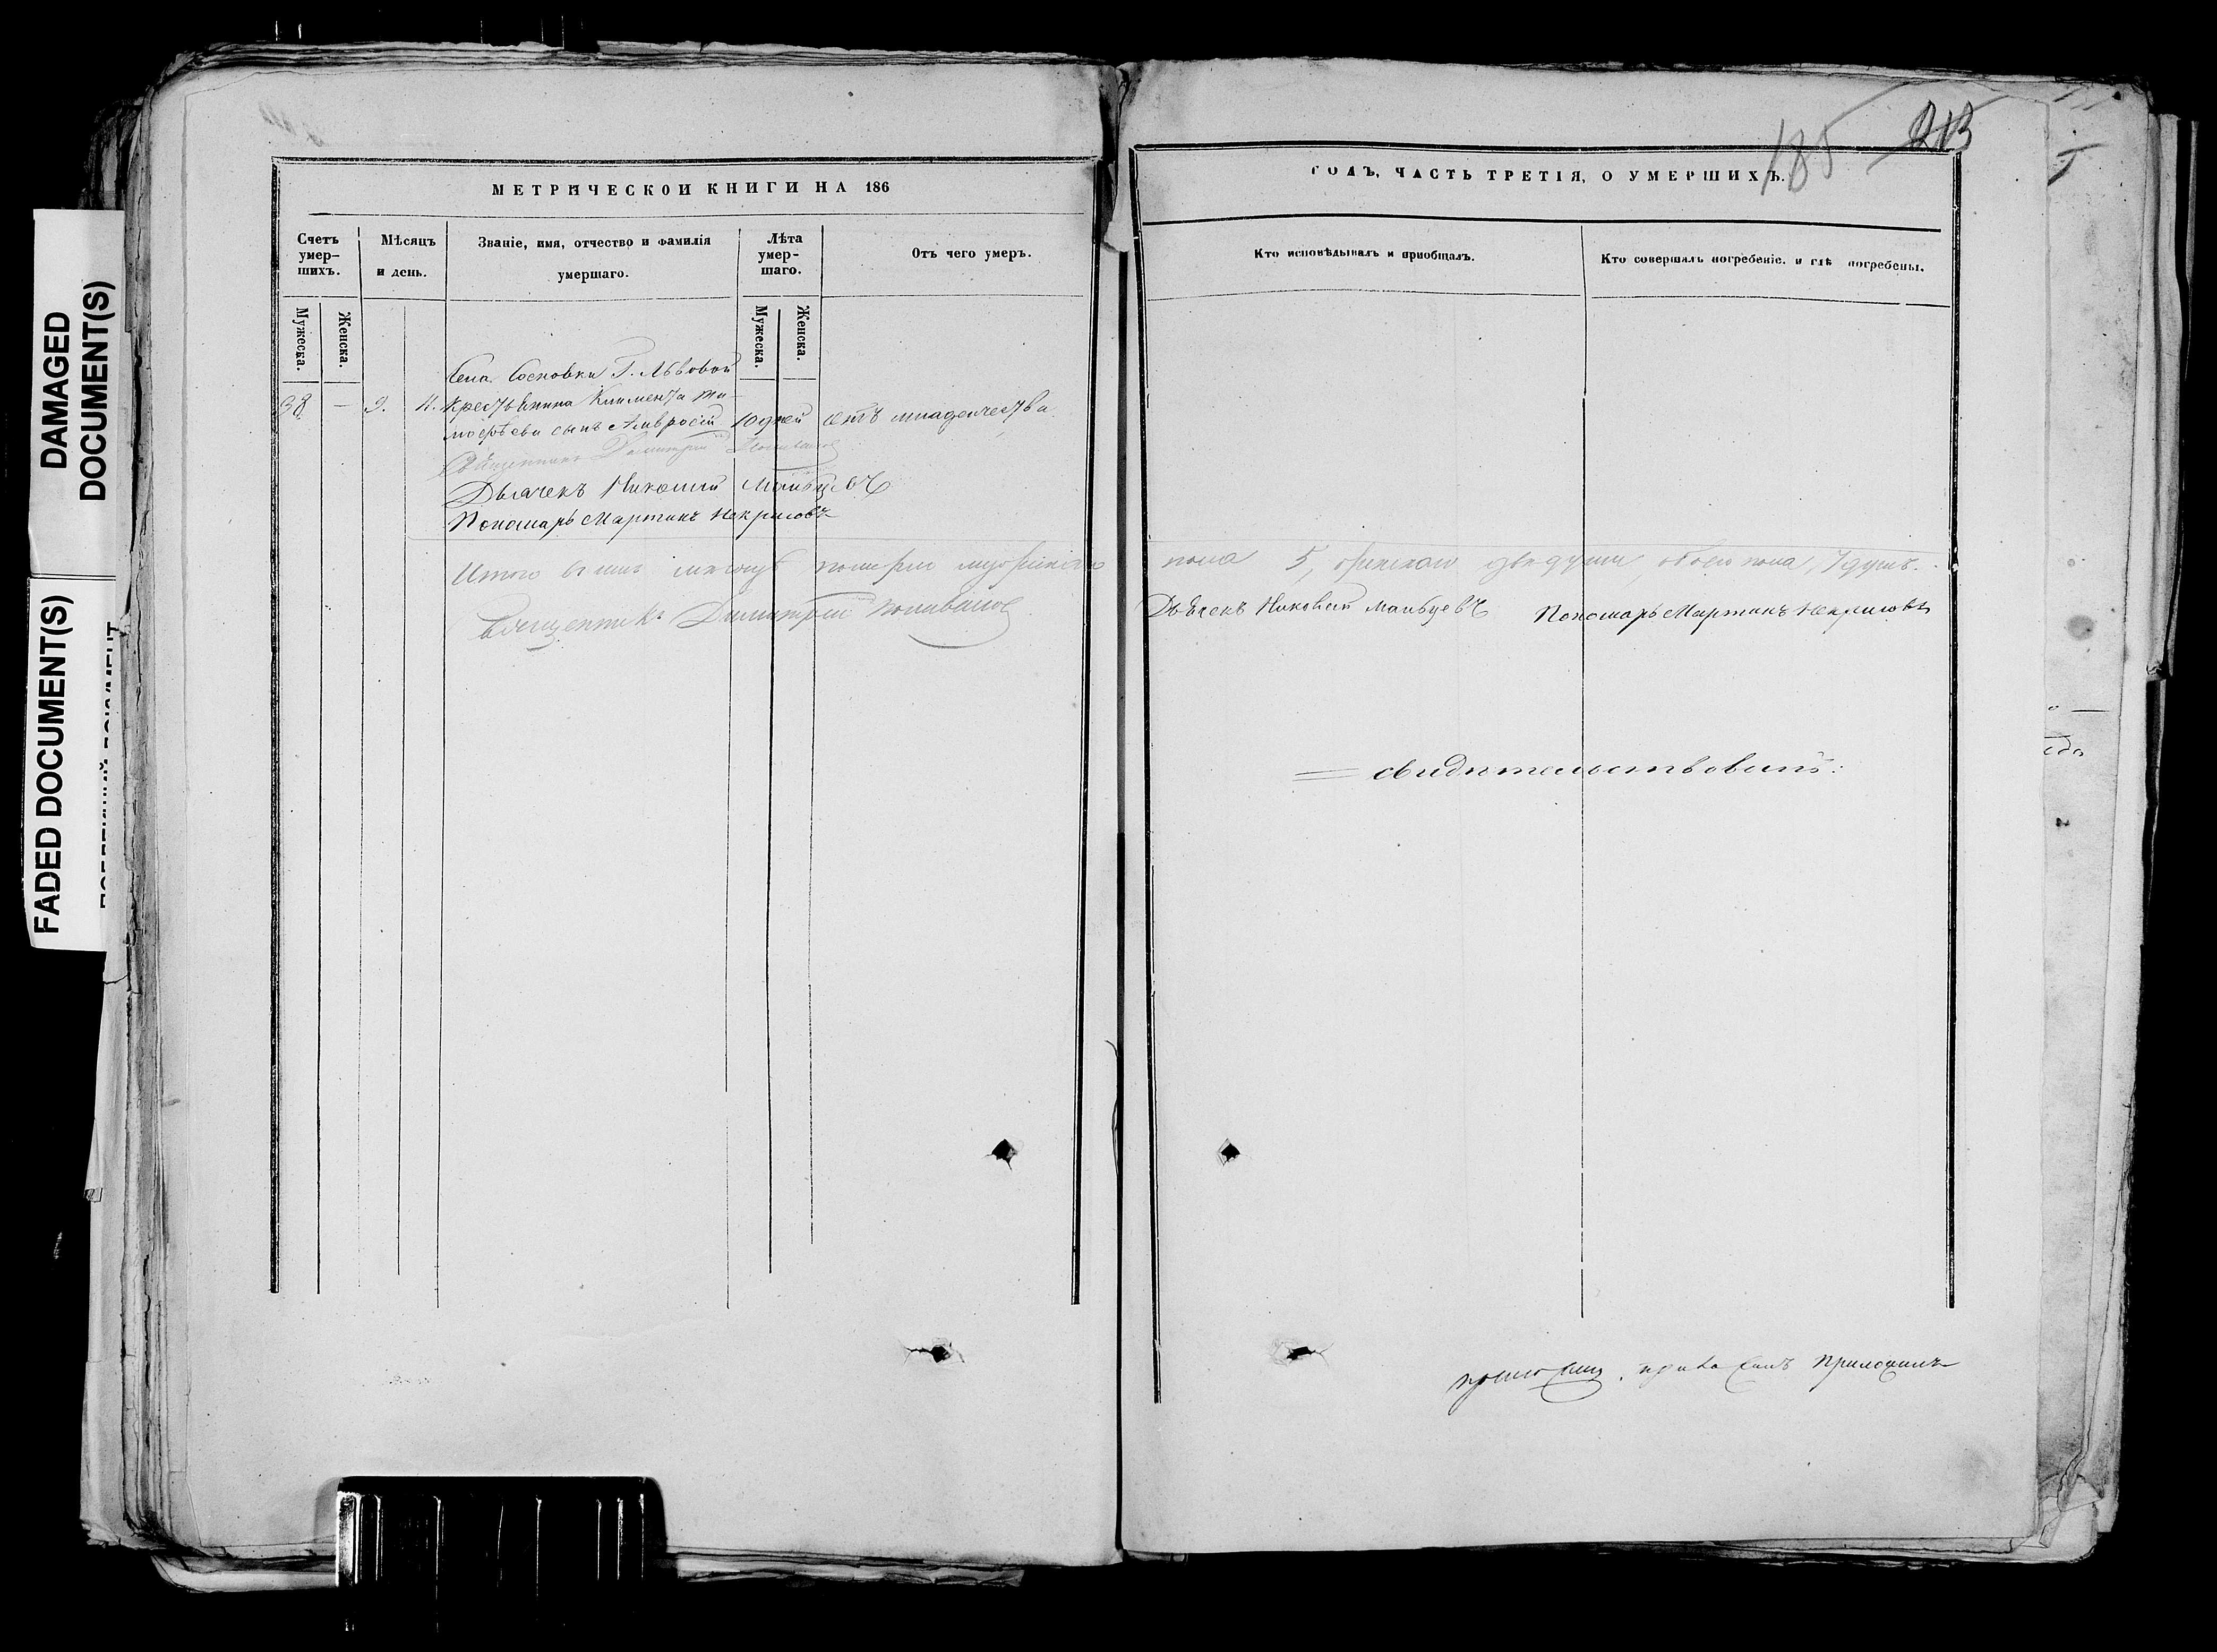 DAMAGED
DOCUMENT(S)
FADED DOCUMENT(S)
185 213
МЕТРИЧЕСКОЙ КНИГИ НА 186
ГОДЪ, ЧАСТЬ ТРЕТІЯ, О УМЕРШИХЪ.
Счетъ умер-шихъ.
Мѣсяцъ и день.
Званіе, имя, отчество и фамилія умершаго.
Лѣта умер-шаго.
Отъ чего умеръ.
Кто исповѣдывалъ и приобщалъ.
Кто совершалъ погребеніе. и гдѣ погребены.
Мужеска.
Женска.
Мужеска.
Женска.
Села Сосновки Г. Львовой
38 — 9. 11. Крестьянина Климента Ти-
мофѣева сынъ Амвросій 10 дней отъ младенчества
Священникъ Димитрій
Дьячекъ Николай Мальцевъ
Пономарь Мартинъ Некрасовъ
Итого въ мѣсяцѣ померли мужескаго пола 5, женскаго двѣ души, обоего пола, 7 душъ.
Священникъ Димитрій Поливановъ Дьячекъ Николай Мальцевъ Пономарь Мартинъ Некрасовъ
= свидѣтельствовалъ:
приложилъ